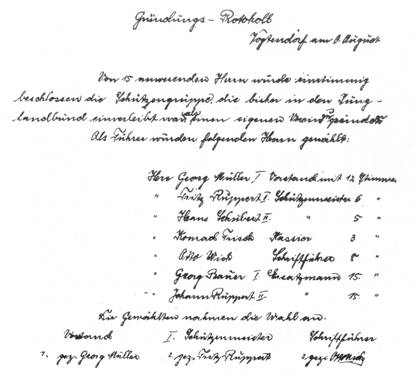 Gründungs-Protokoll
Vogtendorf am 9. August
Von 15 anwesenden Herrn wurde einstimmig
beschlossen die Schützengruppe, die bisher in den Jung-
landbund einverleibt war, als einen eigenen Verein zu
Als Führer wurden folgenden Herrn gewählt:
Herr Georg Müller I Vorstand mit 12 Stimmen
" Fritz Ruppert I. Schützenmeister 6 "
" Hans Schubert II. " 5 "
" Konrad Kassier 3 "
" Otto Wick Schriftführer 8 "
" Georg Bauer I Ersatzmann 15 "
" Johann Ruppert II. " 15 "
Die Gewählten nahmen die Wahl an.
Vorstand I. Schützenmeister Schriftführer
1. gez. Georg Müller 2. gez. Fritz Ruppert 3. gez. O. Wick